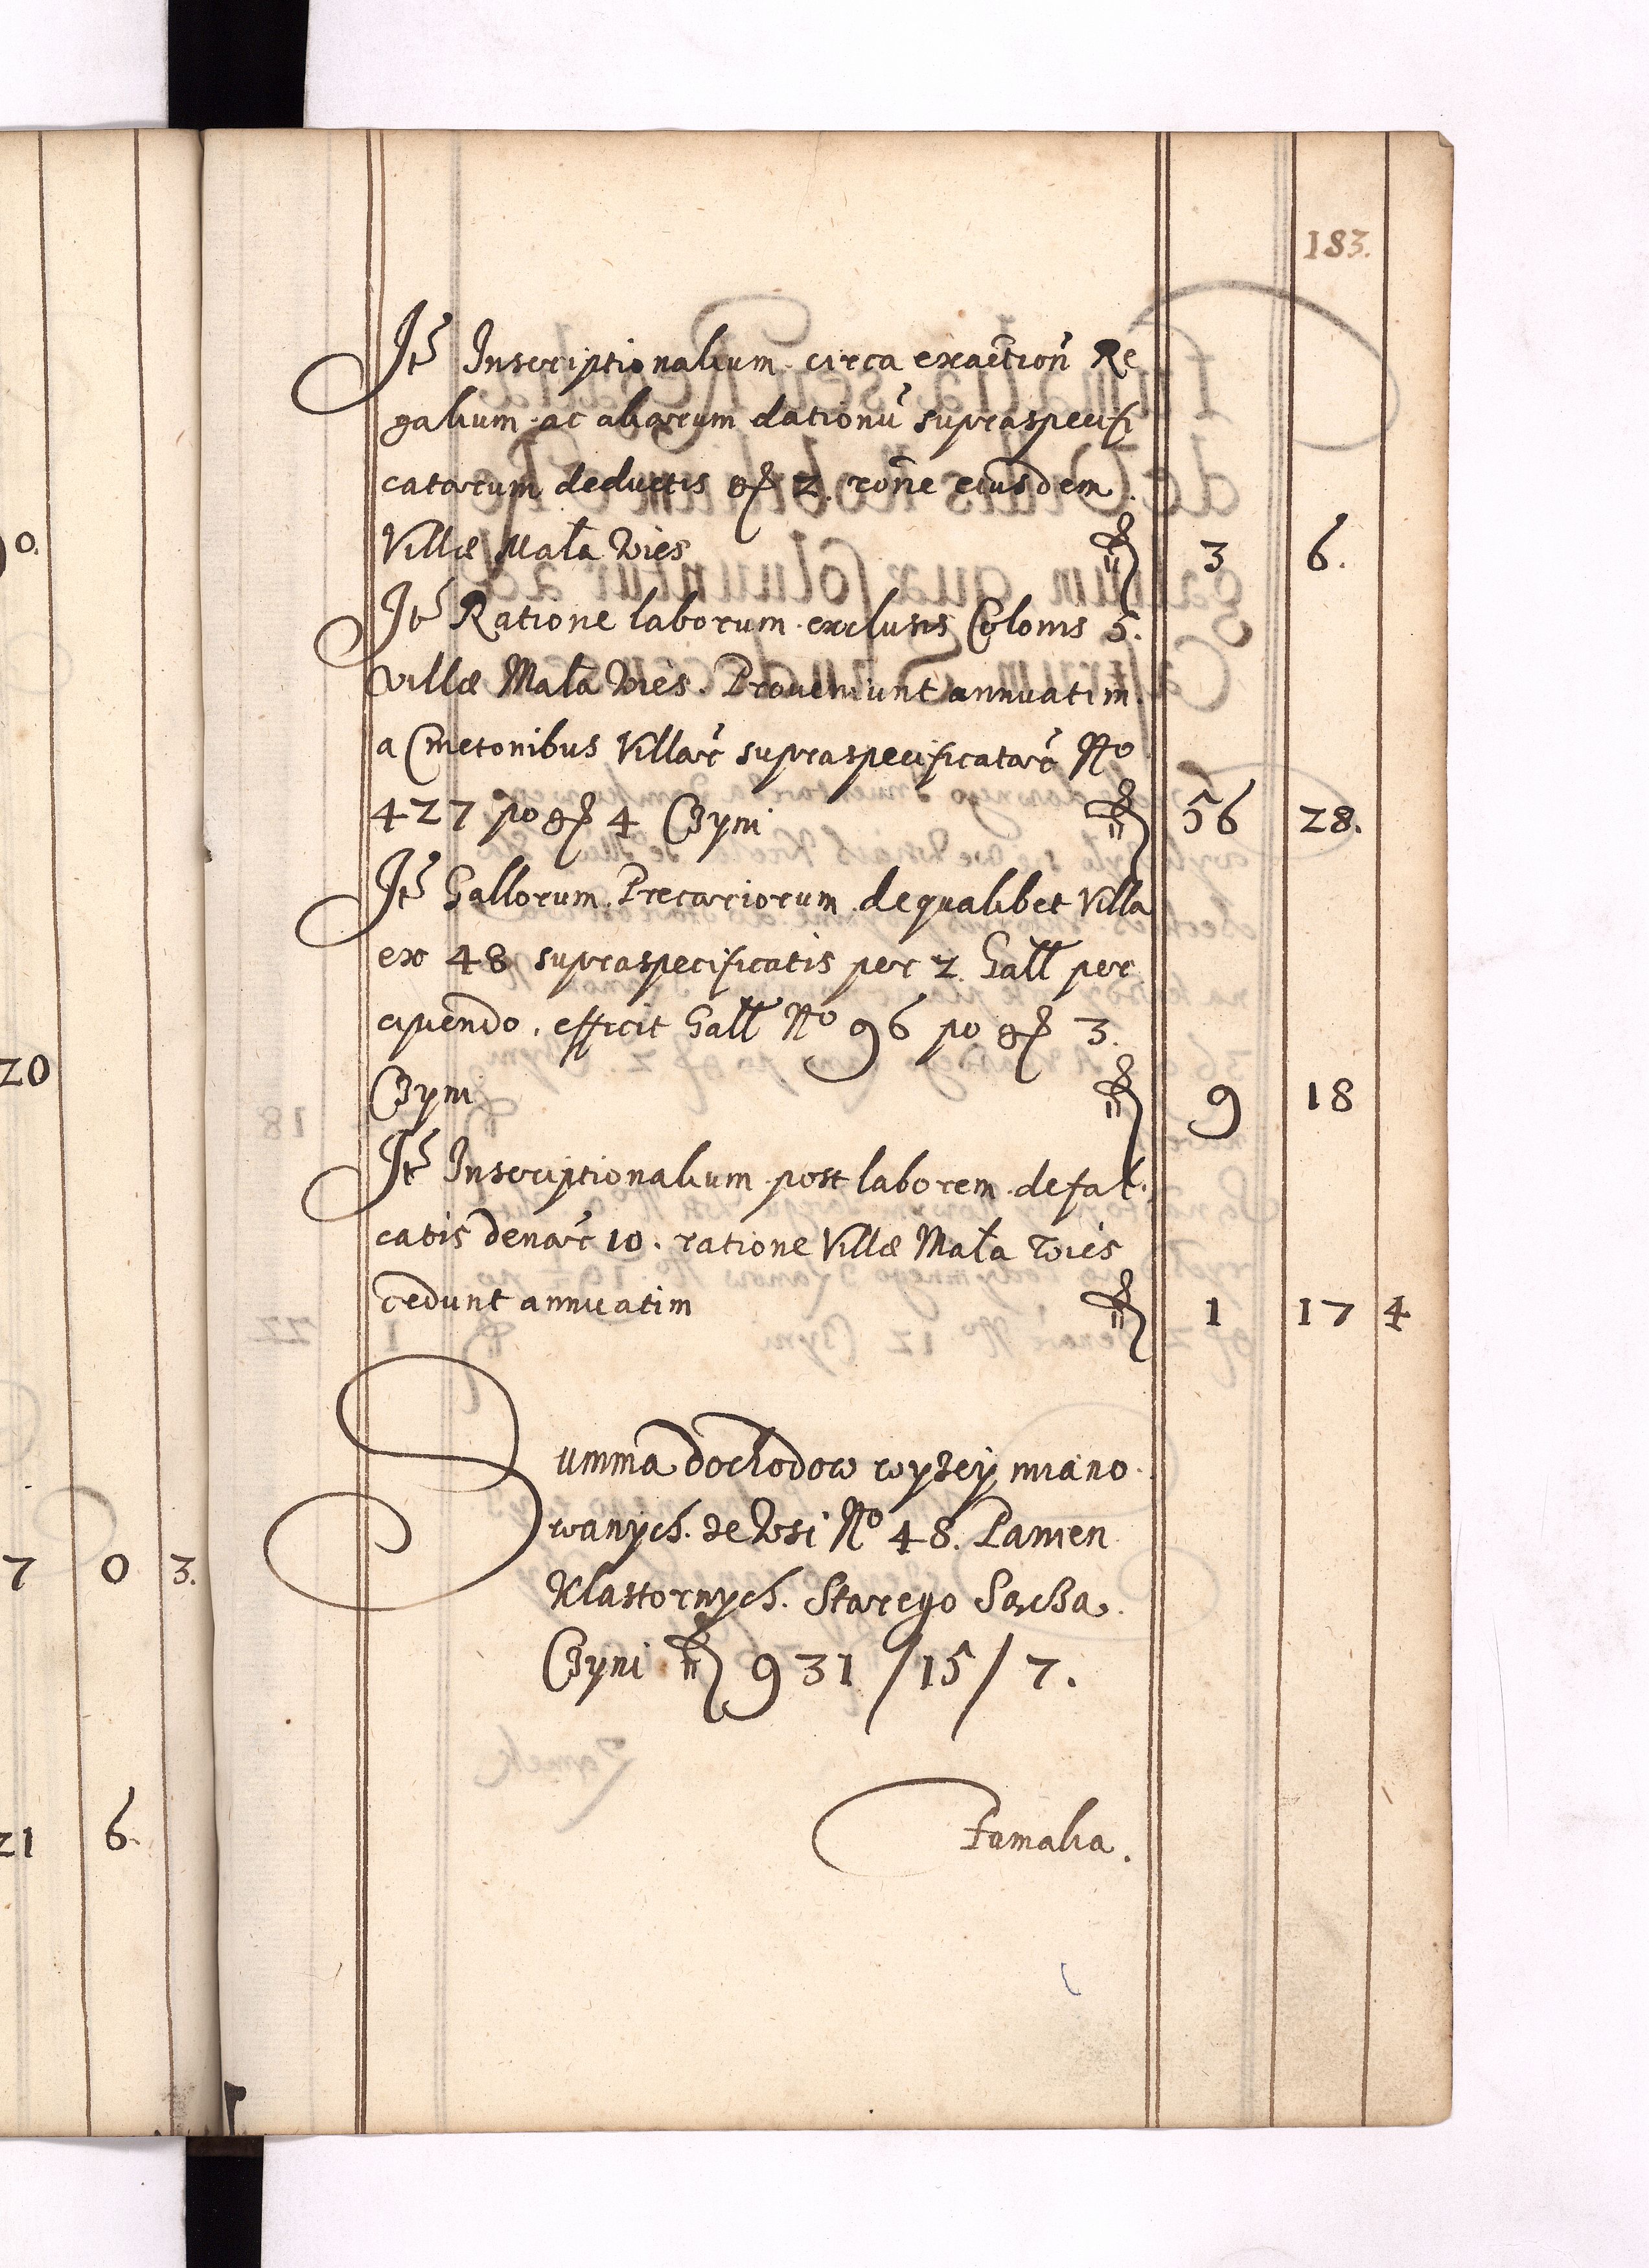 183.
Itẽ Inscriptionalium circa exactioñ Re
galium ac aliarum dationũ supraspecifi
catarum deductis gr 2. rõne eiusdem
Villæ Mała Wies fl 3 6.
Itẽ Ratione laborum exclusis Colonis 5.
villæ Mała Wies. Proveniunt annuatim
a Cmetonibus Villar̃ supraspecificatar̃ No
427 po gr 4 Czyni fl 56 28.
Itẽ Gallorum Precariorum de qualibet Villa
ex 48 supraspecificatis per 2. Gall per
cipiendo, efficit Gall No 96 po gr 3.
Czyni fl 9 18
Itẽ Inscriptionalium post laborem defal
catis denar̃ 10. ratione Villæ Mała Wies
cedunt annuatim fl 1 17 4
Summa dochodow wyzey miano
wanych. ze Wsi No 48. Panien
Klastornych. Starego Sacza.
Czyni fl 931/15/7.
Fumalia.
0.
20
7 0 3.
21 6.